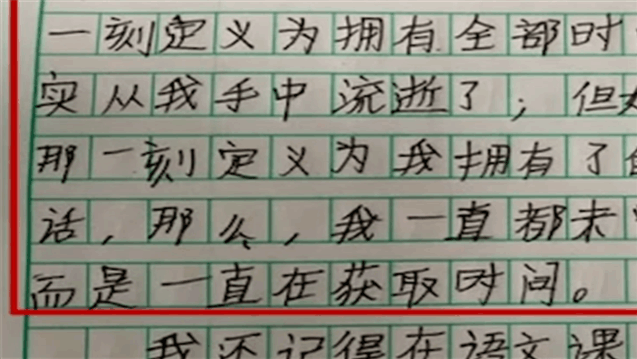 一刻定义为拥有全部时
实从我手中流逝了；但
那一刻定义为我拥有了
话，那么，我一直都未
而是一直在获取时间。
我还记得在语文课